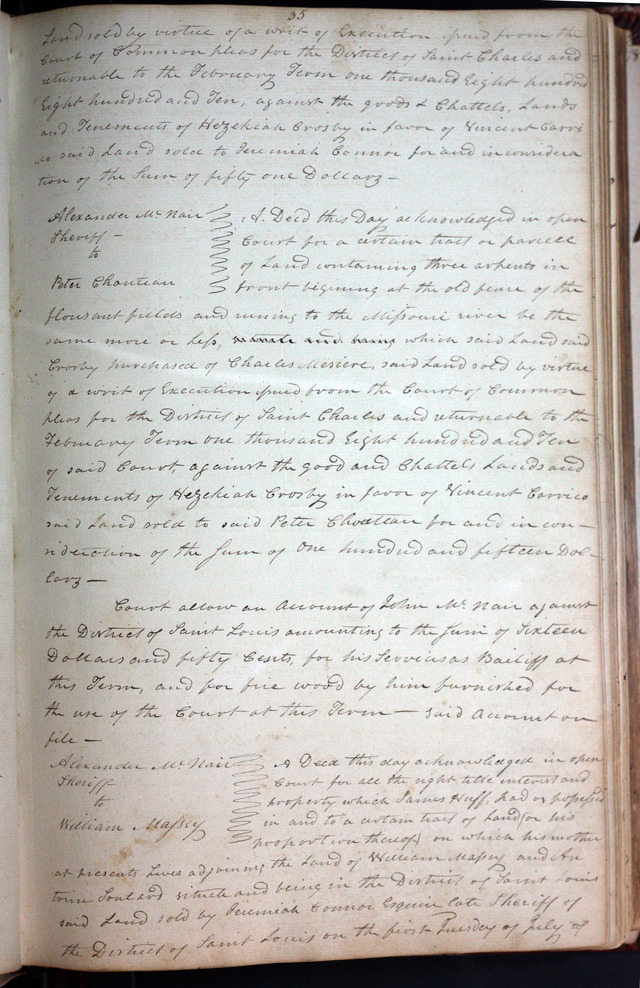 35
Land sold by virtue of a writ of Execution issued from the
Court of Common pleas for the District of Saint Charles and
returnable to the February Term one thousand Eight hundred
Eight hundred and Ten, against the goods & Chattels, Lands
and Tenements of Hezekiah Crosby in favor of Vincent Carri
co said Land sold to Jeremiah Connor for and in considera
tion of the Sum of fifty one Dollars —
Alexander McNair
Sheriff —
to
Peter Chouteau
A Deed this Day acknowledged in open
Court for a certain tract or parcell
of Land containing three arpents in
front begining at the old fence of the
plousant fields and runing to the Missouri river be the
same more or less, which said Land said
Crosby purchased of Charles said Land sold by virtue
of a writ of Execution issued from the Court of Common
pleas for the District of Saint Charles and returnable to the
February Term one thousand Eight hundred and Ten
of said Court against the good and Chattels Lands and
Tenements of Hezekiah Crosby in favor of Vincent Carrico
said Land sold to said Peter Chouteau for and in con-
sideraction of the Sum of One hundred and fifteen Dol-
lars —
Court allow an Account of John McNair against
the District of Saint Louis amounting to the Sum of Sixteen
Dollars and fifty Cents, for his Services as Bailiff at
this Term, and for fire wood by him furnished for
the use of the Court at this Term — said Account on
file —
Alexander McNair
Sheriff
to
William Massey
A Deed this day acknowledged in open
Court for all the right title interest and
property which James Huff, had or possessed
in and to a certain tract of Land (or his
proportion thereof) on which his mother
at presents Lives adjoining the Land of William Massey and An
toine Soulard situate and being in the District of Saint Louis
said Land sold by Jeremiah Connor Esquire late Sheriff of
the District of Saint Louis on the first Tuesday of July of